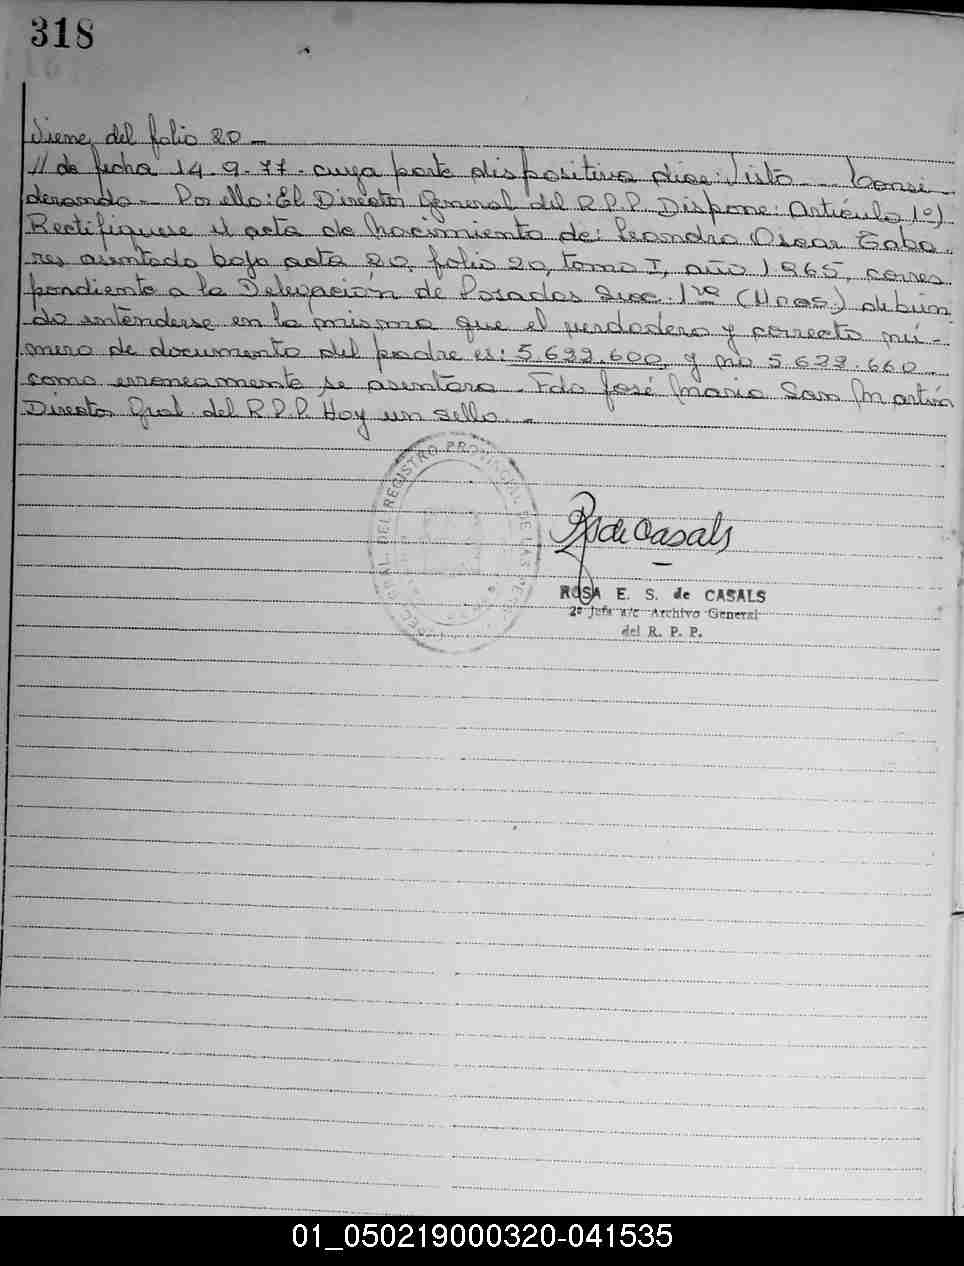 318
Viene del folio 20 —
// de fecha 14.9.77. cuya parte dispositiva dice: Visto — Consi-
derando — Por ello: El Director General del R.P.P. Dispone: Artículo 1º)
Rectifiquese el acta de nacimiento de: Leandro Oscar Taba-
res asentado bajo acta 20, folio 20, tomo I, año 1965, corres-
pondiente a la Delegación de Posadas Secc. 1ra (Mnes.) debien-
do entenderse en la misma que el verdadero y correcto nú-
mero de documento del padre es: 5.699.600, y no 5.699.660
como erroneamente se asentara. Fdo José Maria San Martin
Director Gral. del R.P.P. Hay un sello. —
GRAL. DEL REGISTRO PROVINCIAL DE LAS PERS
R S de Casals
ROSA E. S. de CASALS
2º Jefe a/c Archivo General
del R. P. P.
01_050219000320-041535